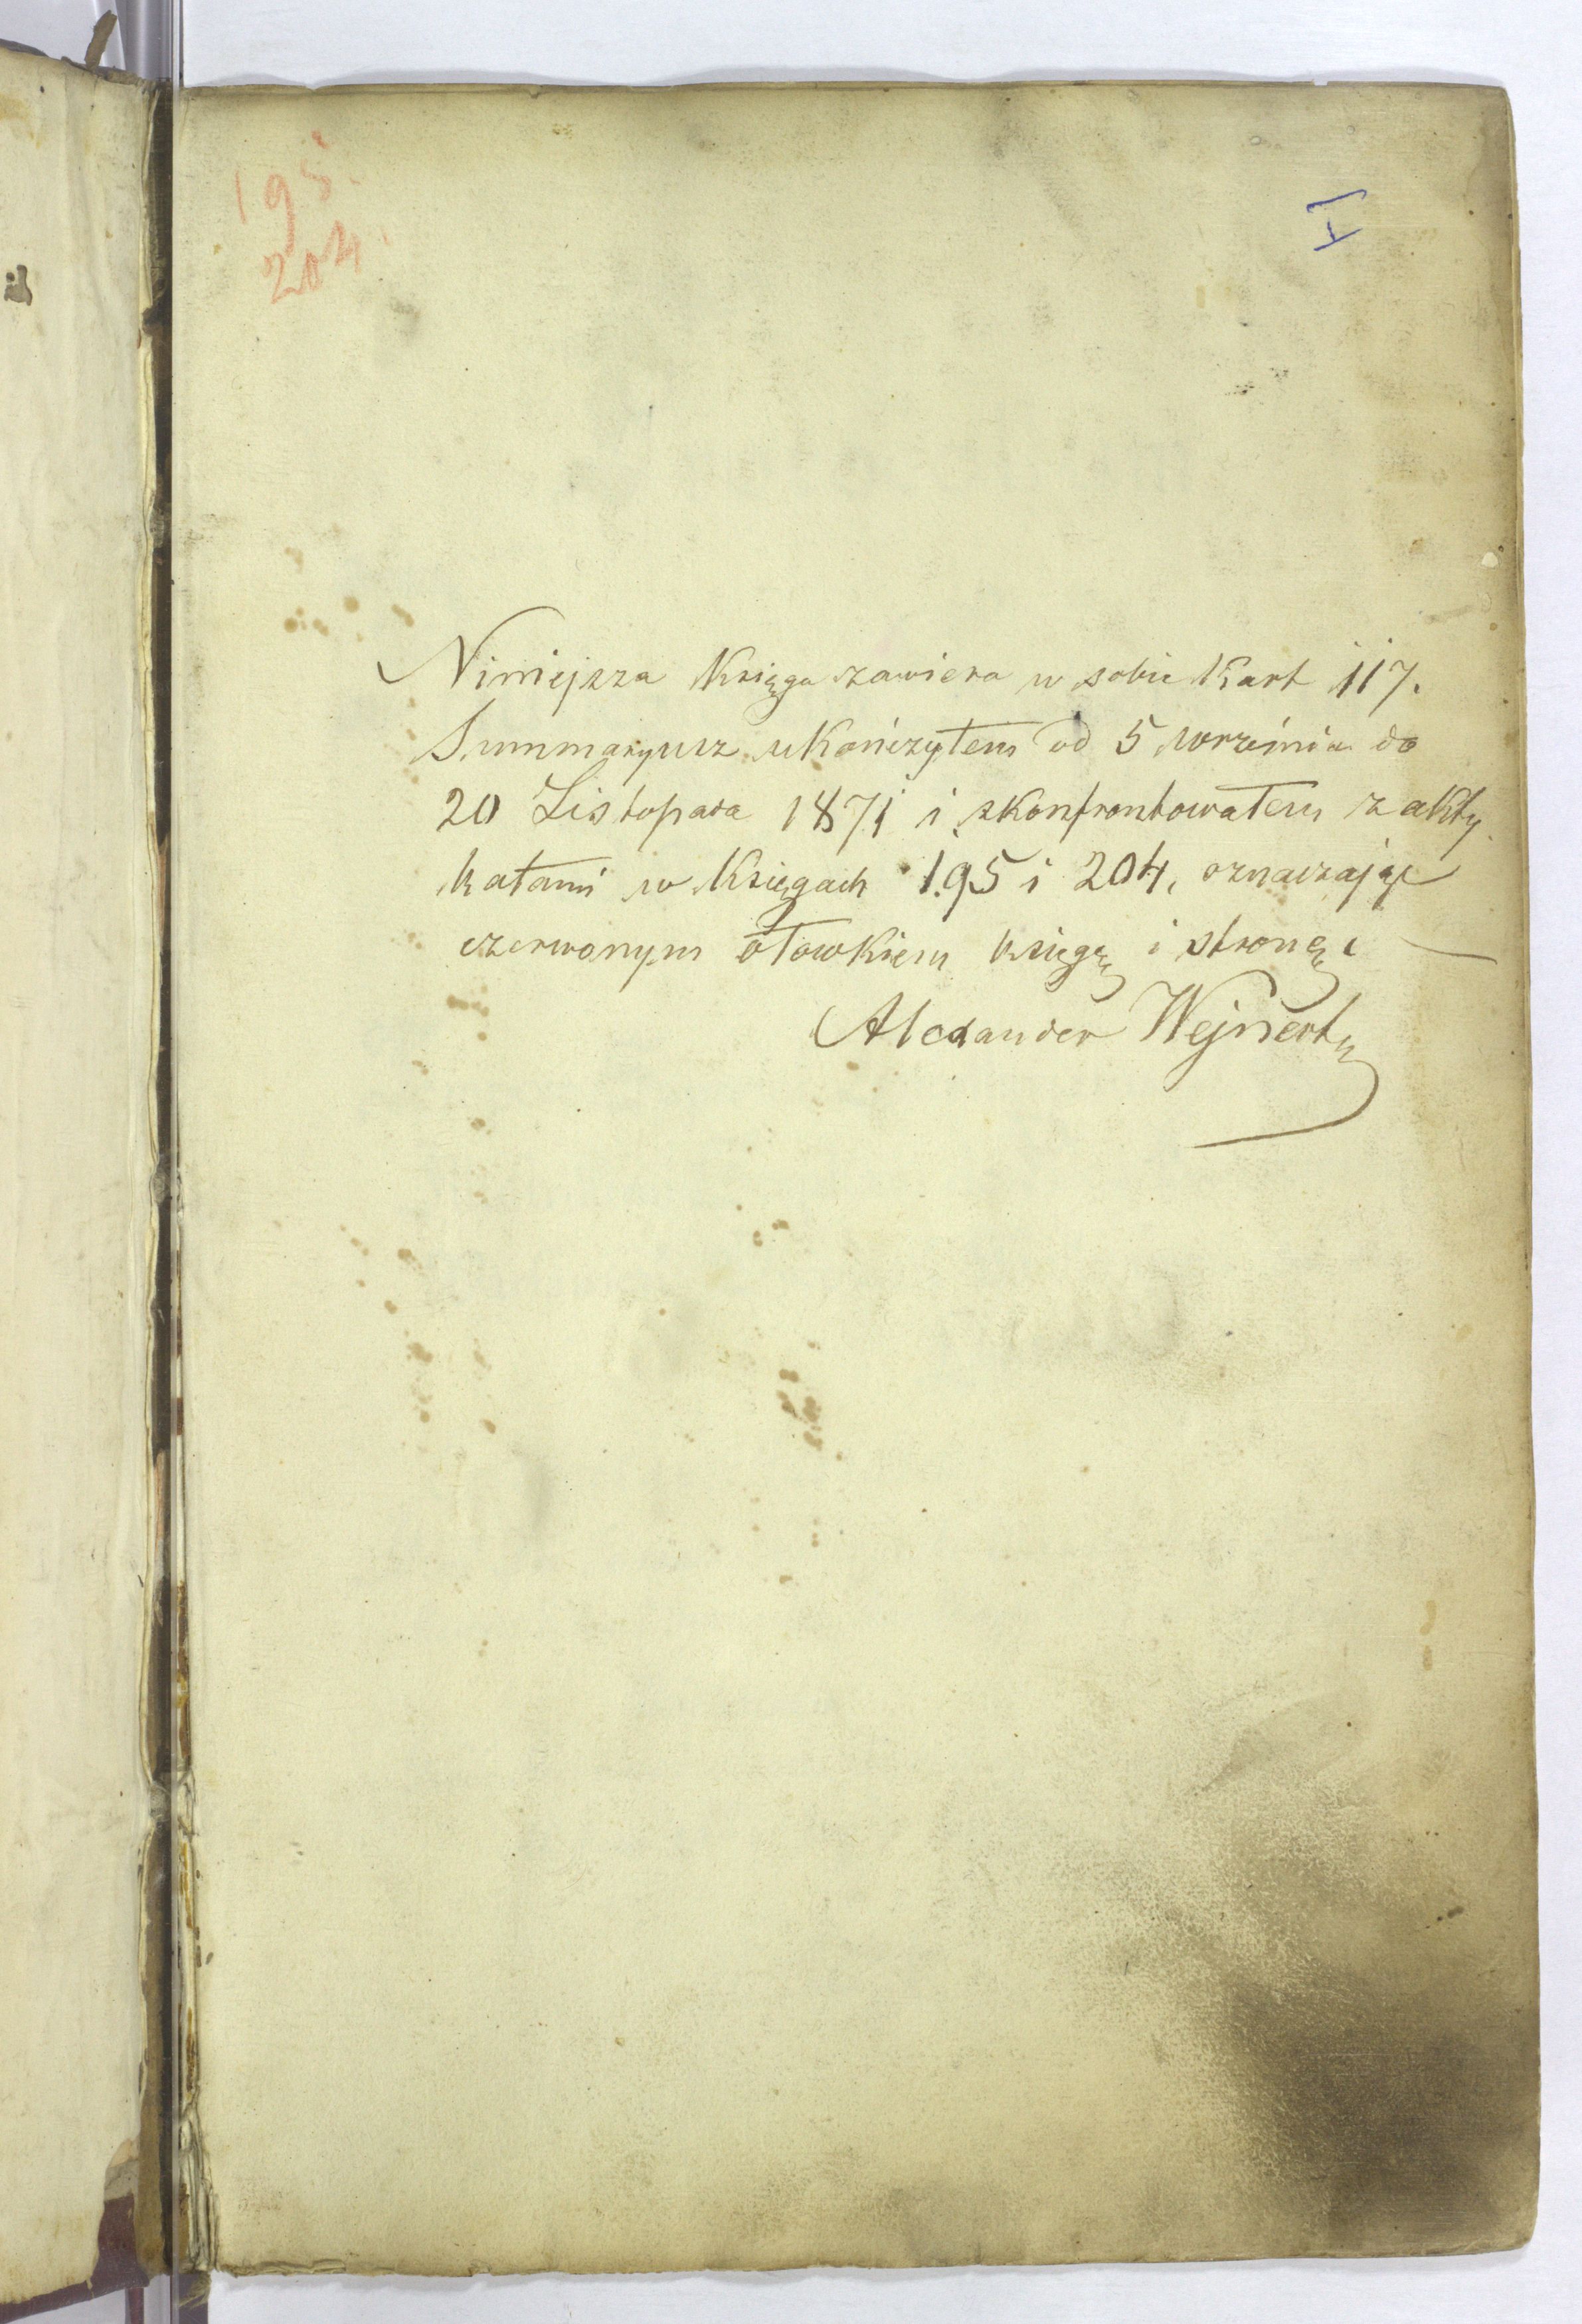 195.
204.
I
Niniejsza Księga zawiera w sobie Kart 117.
Summaryusz ukończyłem od 5 września do
20 Listopada 1871 i skonfrontowałem z akty
katami w Księgach 195 i 204, oznaczając
czerwonym ołówkiem księgę i stronę.
Alexander Wejnert